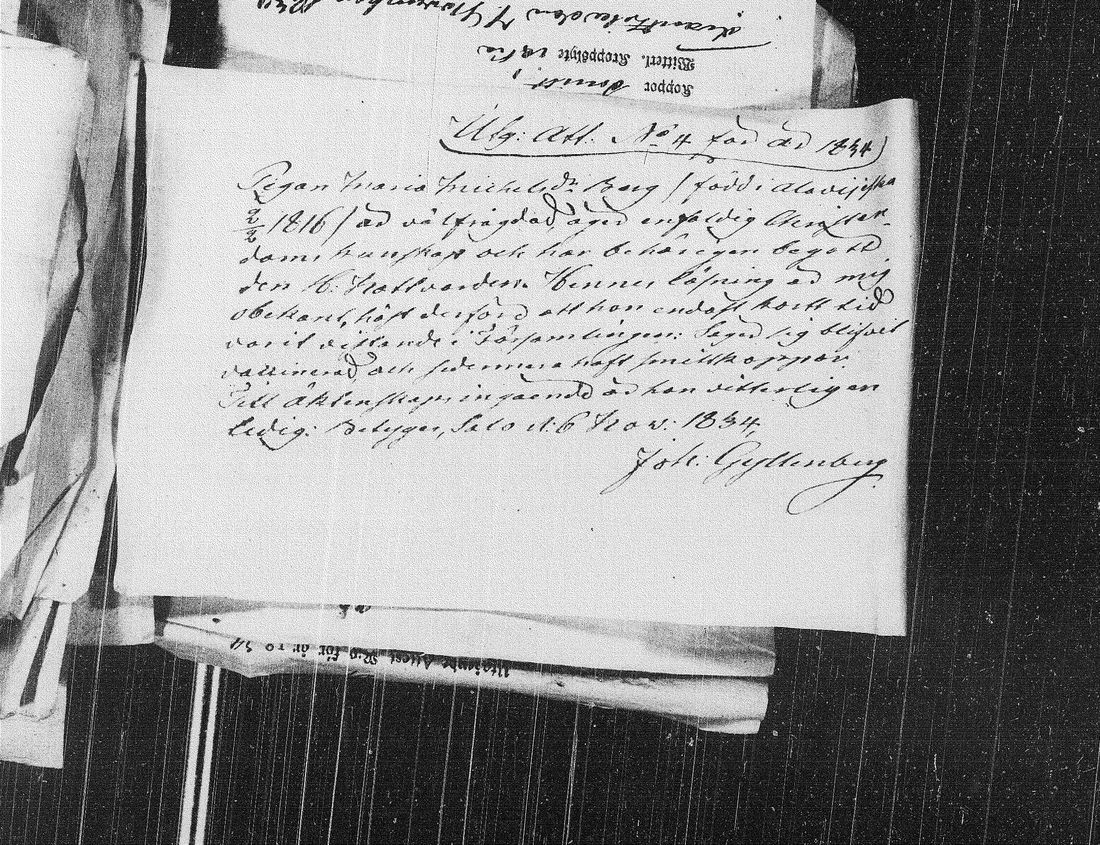 Utg: Att. No 4 för år 1834
Pigan Maria Michelsdr Berg / född i Alavijeska
2/2 1816 / är välfrägdad, äger enfaldig Christen-
doms kunskap och har behörigen begått
den H. Nattvarden. Hennes läsning är mig
obekant, häst derföre att hon endast kortt tid
varit vistande i Församlingen: Säger sig blifvit
vaccinerad, och sedermera haft smittkoppor.
Till äktenskaps ingående är hon vitterligen
ledig: Betygar, Salo d: 6 Nov: 1834,
Joh: Gyllenberg
Koppor
Witterl. Kroppslyte
Utgifvate Attest N:o för år 18 34